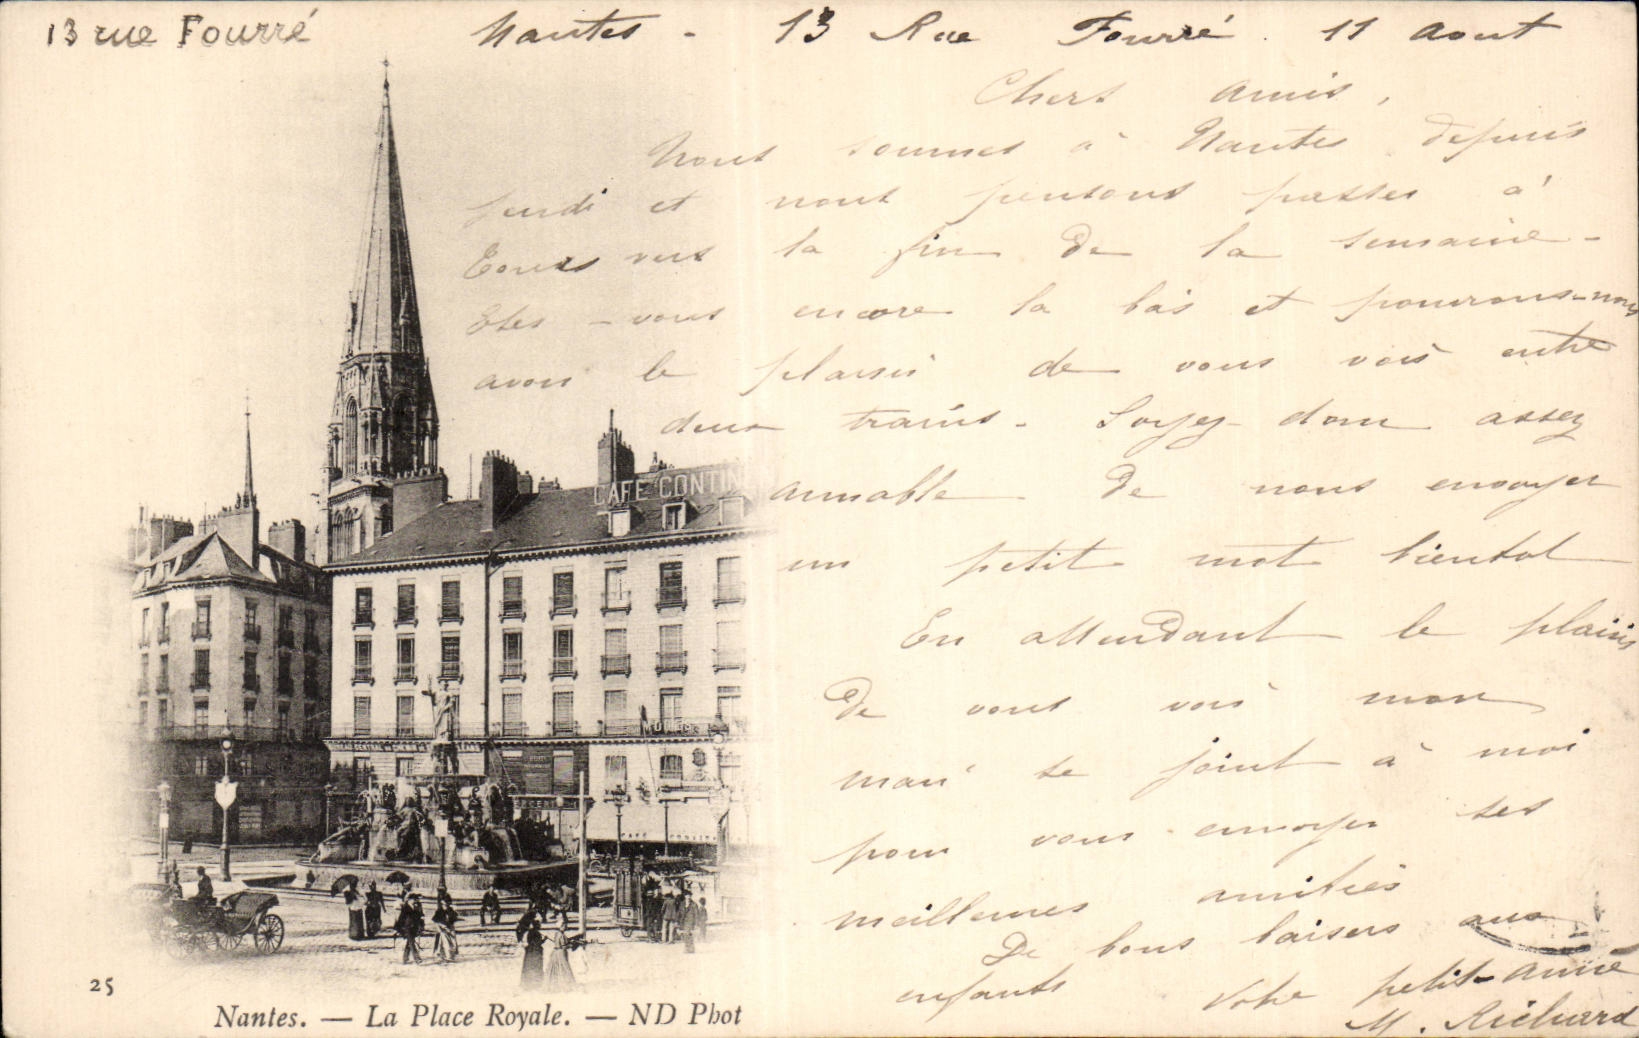 13 rue Fourré
Nantes - 13 Rue Fourré. 11 Aout
Chers Amis,
Nous sommes à Nantes depuis
jeudi et nous pensons passer à
Tours vers la fin de la semaine -
Etes-vous encore la bàs et pourrons-nous
avoir le plaisir de vous voir entre
deux trains - Soyez donc assez
aimable de nous envoyer
un petit mot bientot
En attendant le plaisir
De vous voir mon
mari se joint à moi
pour vous envoyer ses
meilleures amitiés
De bons baisers aux
enfants Votre petite amie
M. Richard
CAFE CONTIN
25
Nantes. — La Place Royale. — ND Phot